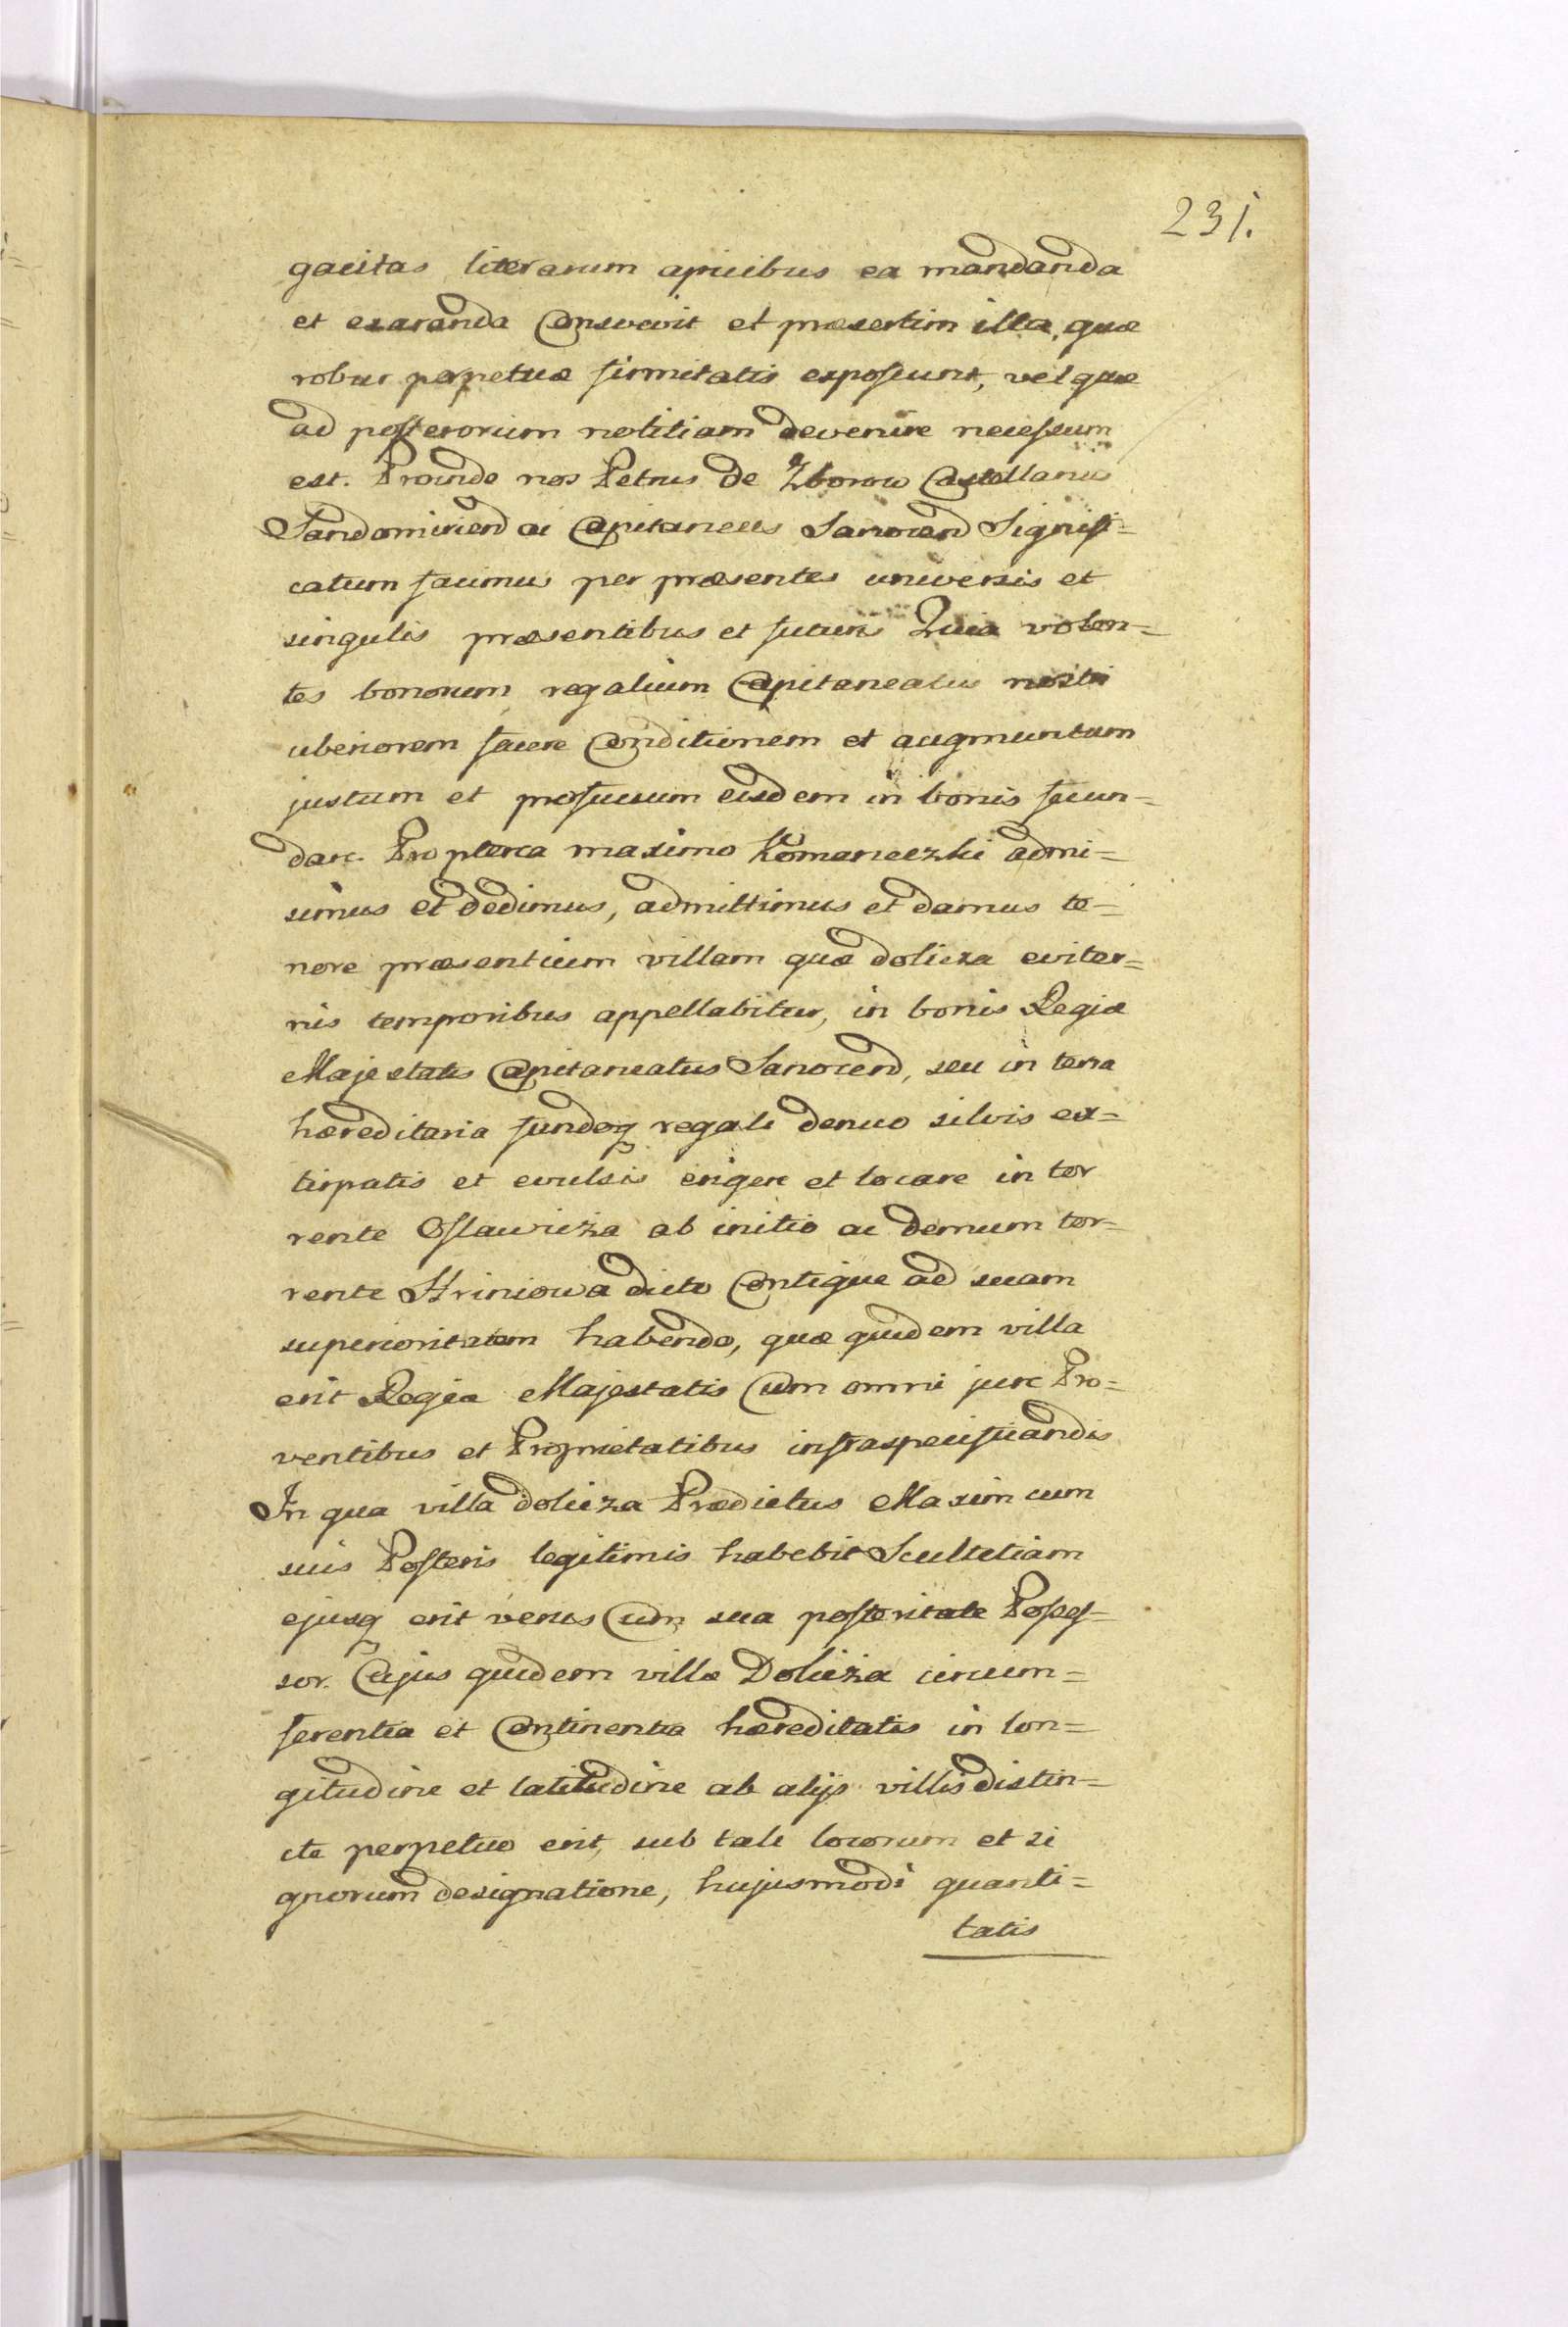 231.
gacitas literarum apicibus ea mandanda
et exaranda Consvevit et præsertim illa, quæ
robur perpetuæ firmitatis exposcunt, vel quæ
ad posterorum notitiam devenire necessum
est. Proinde nos Petrus de Zborow Castellanus
Sandomirien ac Capitaneus Sanocen Signifi=
catum facimus per præsentes universis et
singulis præsentibus et futuris Quia volen=
tes bonorum regalium Capitaneatus nostri
uberiorem facere Conditionem et augmentum
justum et profuturum eisdem in bonis secun=
dare. Propterea maximo Komaneczki admi=
simus et dedimus, admittimus et damus te=
nore præsentium villam quæ dolicza eviter=
nis temporibus appellabitur, in bonis Regiæ
Majestatis Capitaneatus Sanocen, seu in terra
hæreditaria fundoq regali denuo silvis ex=
tirpatis et evulsis erigere et locare in tor
rente Oslawiza ab initio ac demum tor=
rente Hriniowa dicto Contigue ad suam
superioritatem habendo, quæ quidem villa
erit Regiæ Majestatis Cum omni jure Pro=
ventibus et Proprietatibus infraspecificandis
In qua villa dolieza Prædictus Maxim cum
suis Posteris legitimis habebit Scultetiam
ejusq erit verus Cum sua posteritate Posses=
sor. Cujus quidem villæ Dolieza circum=
ferentia et Continentia hæreditatis in lon=
gitudine et latitudine ab alijs villis distin=
cta perpetuo erit, sub tali locorum et si
gnorum designatione, hujusmodi quanti=
tatis